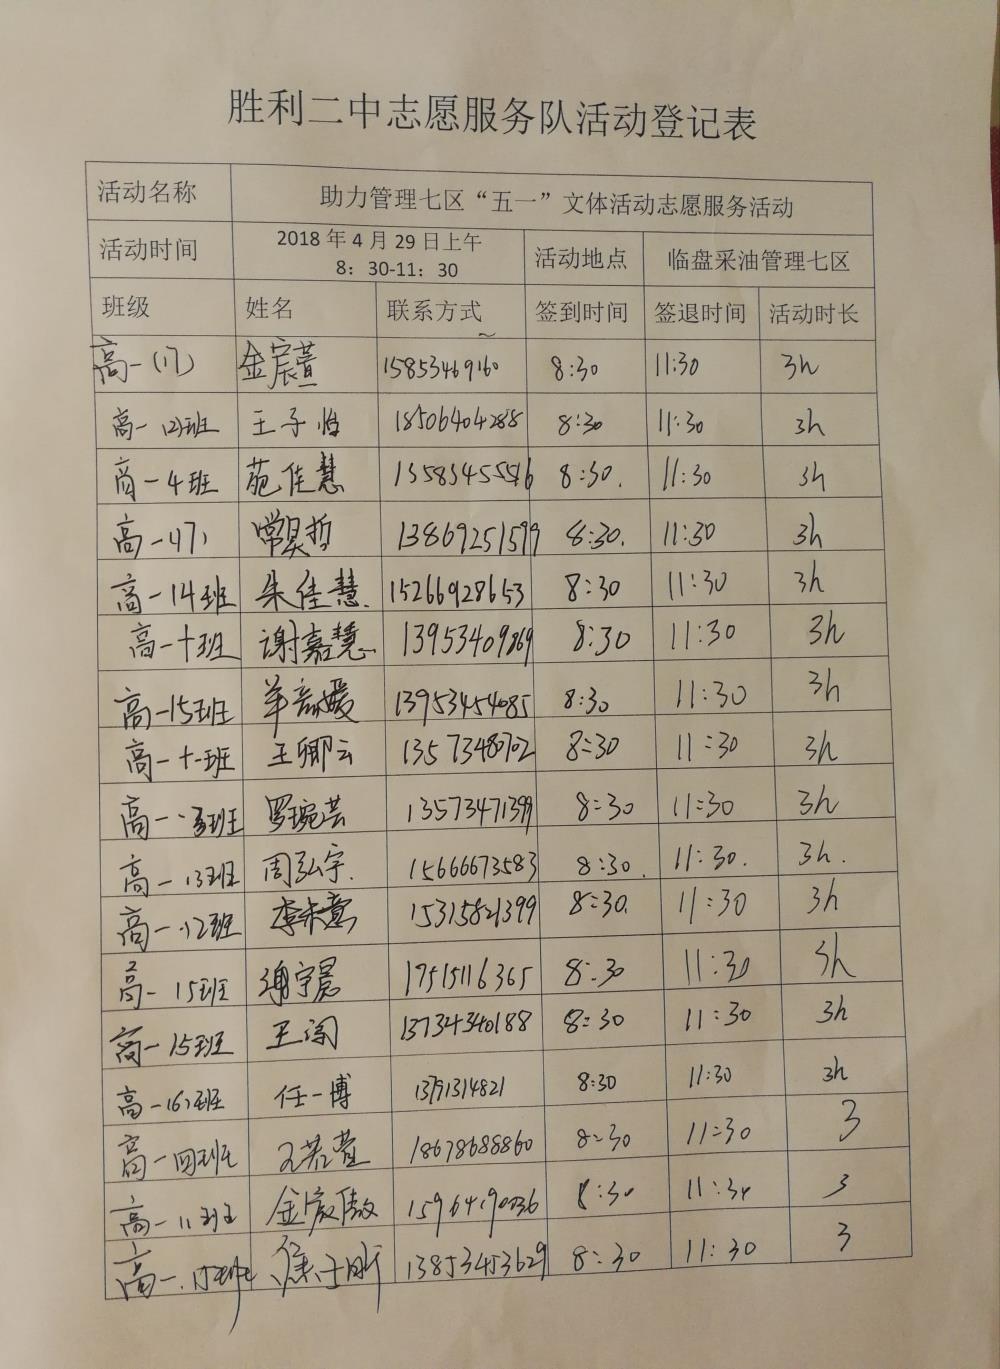 胜利二中志愿服务队活动登记表
活动名称 助力管理七区“五一”文体活动志愿服务活动
活动时间 2018年4月29日上午 8：30-11：30 活动地点 临盘采油管理七区
班级 姓名 联系方式 签到时间 签退时间 活动时长
高一(17) 金宸萱 15853469160 8:30 11:30 3h
高一(2)班 王子怡 18506404288 8:30 11:30 3h
高一4班 苑佳慧 8:30. 11:30 3h
高一(7) 常昊哲 13869251599 8:30. 11:30 3h
高一14班 朱佳慧. 15266928653 8:30 11:30 3h
高一十班 谢嘉慧 13953409869 8:30 11:30 3h
高一15班 13953454085 8:30 11:30 3h
高一十一班 王卿云 13573480702 8:30 11:30 3h
高一 罗琬芸 13573471399 8:30 11:30 3h
高一13班 周弘宇. 15666673583 8:30. 11:30. 3h.
高一12班 15315821399 8:30. 11:30 3h
高一15班 谢宇晨 17515116365 8:30 11:30 3h
高一15班 王闯 13734340188 8:30 11:30 3h
高一(6)班 任一博 13791314821 8:30 11:30 3h
高一四班 王若萱 18678688860 8:30 11:30 3
高一11班 金宸傲 8:30 11:30 3
高一.15班 焦子昕 13853453629 8:30 11:30 3